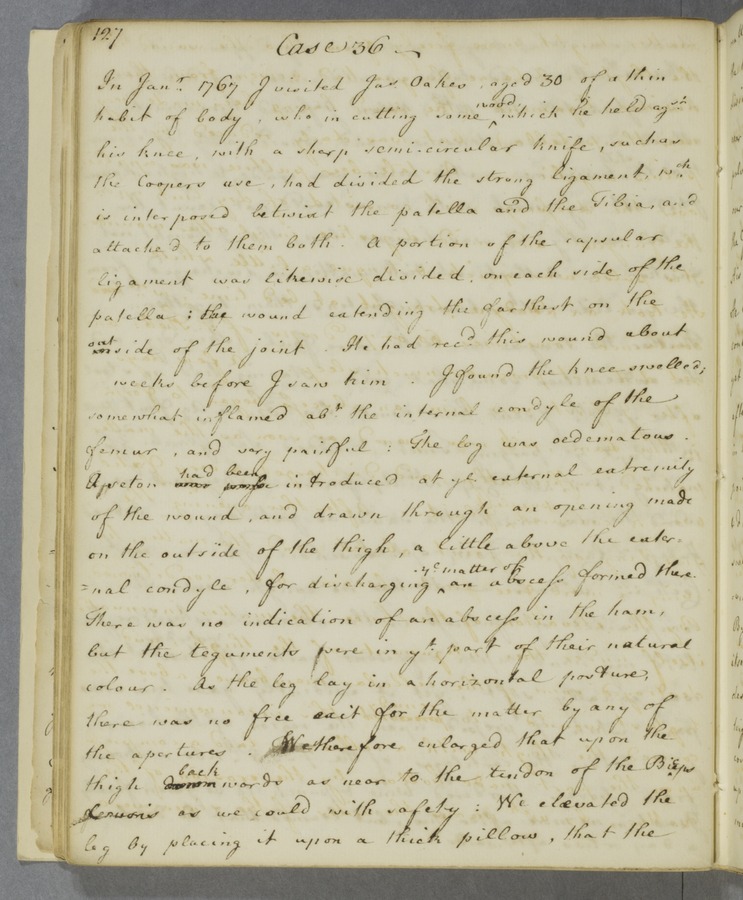 127
Case 36
In Janr. 1767 I visited Jas. Oakes, aged 30 of a thin
habit of body, who in cutting some wood which he held agst.
his knee, with a sharp semi-circular knife, such as
the Coopers use, had divided the strong ligament, wch.
is interposed betwixt the patella and the Tibia, and
attached to them both. A portion of the capsular
ligament was likewise divided, on each side of the
patella; the wound extending the farthest on the
outside of the joint. He had recd. this wound about
weeks before I saw him. I found the knee swelled;
somewhat inflamed abt. the internal condyle of the
femur, and very painful: The leg was oedematous.
A seton had been introduced at ye. external extremity
of the wound, and drawn through an opening made
on the outside of the thigh, a little above the exter-
=nal condyle, for discharging ye. matter of an abscess formed there.
There was no indication of an abscess in the ham,
but the teguments were in yt. part of their natural
colour. As the leg lay in a horizontal posture,
there was no free exit for the matter by any of
the apertures. We therefore enlarged that upon the
thigh backwards as near to the tendon of the Biceps
cruris as we could with safety: We elevated the
leg by placing it upon a thick pillow, that the